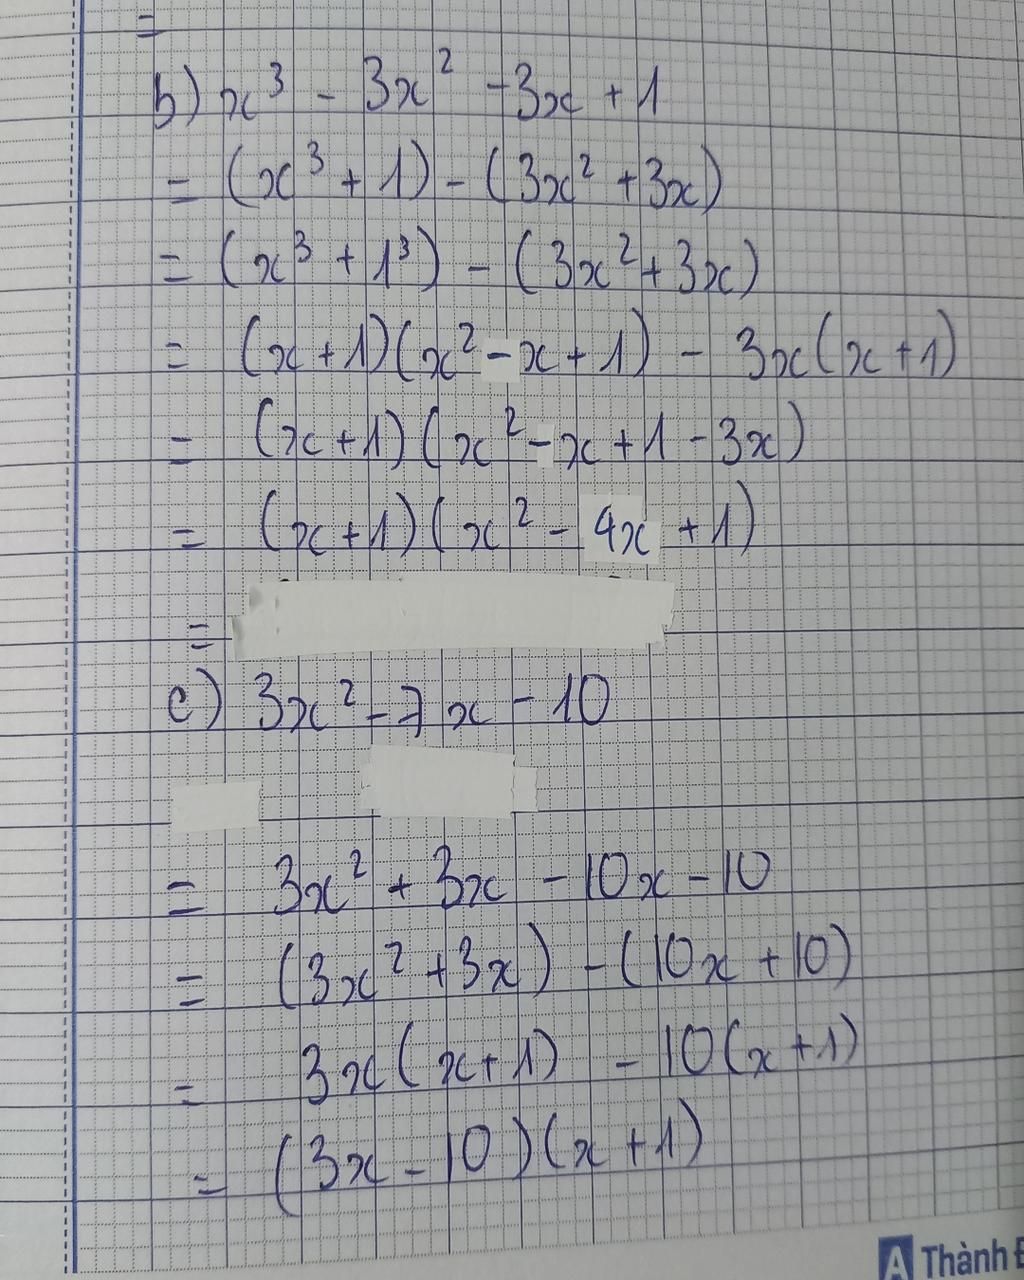 =
b) x³ - 3x² - 3x + 1
= (x³ + 1) - (3x² + 3x)
= (x³ + 1³) - (3x² + 3x)
= (x + 1)(x² - x + 1) - 3x(x + 1)
= (x + 1)(x² - x + 1 - 3x)
= (x + 1)(x² - 4x + 1)
=
c) 3x² - 7x - 10
= 3x² + 3x - 10x - 10
= (3x² + 3x) - (10x + 10)
= 3x(x + 1) - 10(x + 1)
= (3x - 10)(x + 1)
A Thành